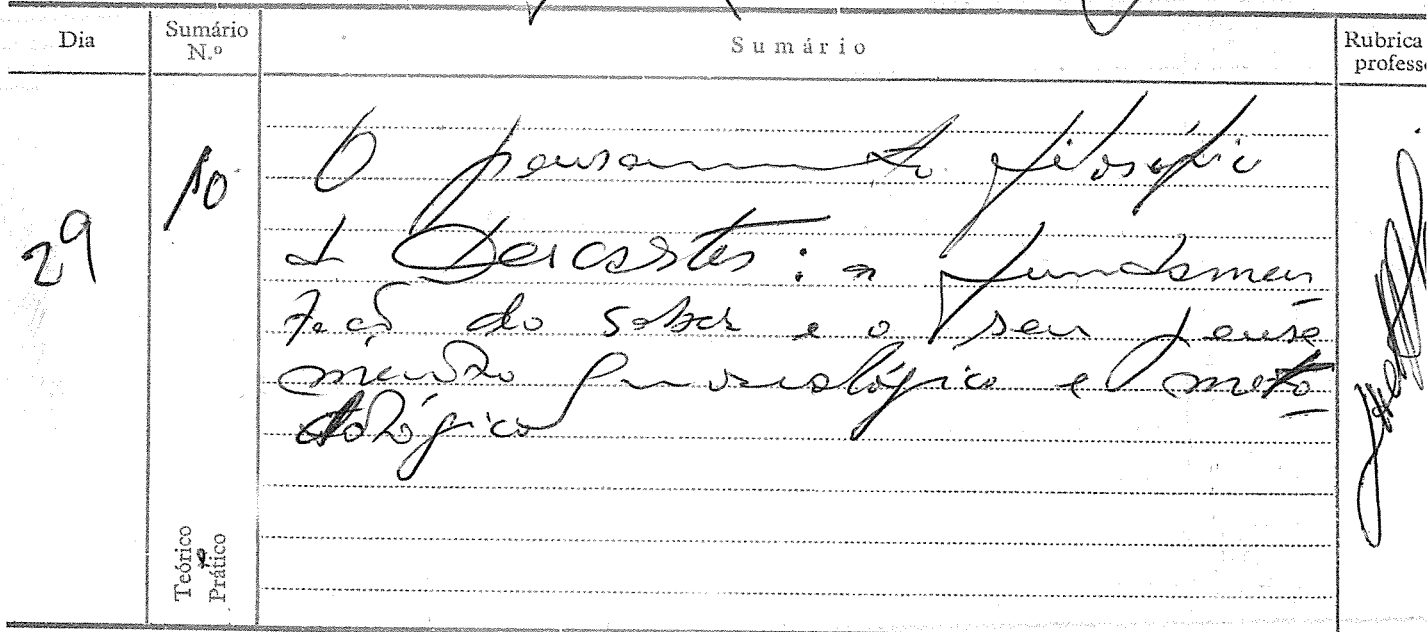 Dia
Sumário
N.º
Sumário
Rubrica
profess
29
10
O pensamento filosófico
de Descartes: a fundamen
tação do saber e o seu pensa
mento gnoseológico e meto
dológico
Teórico
Prático